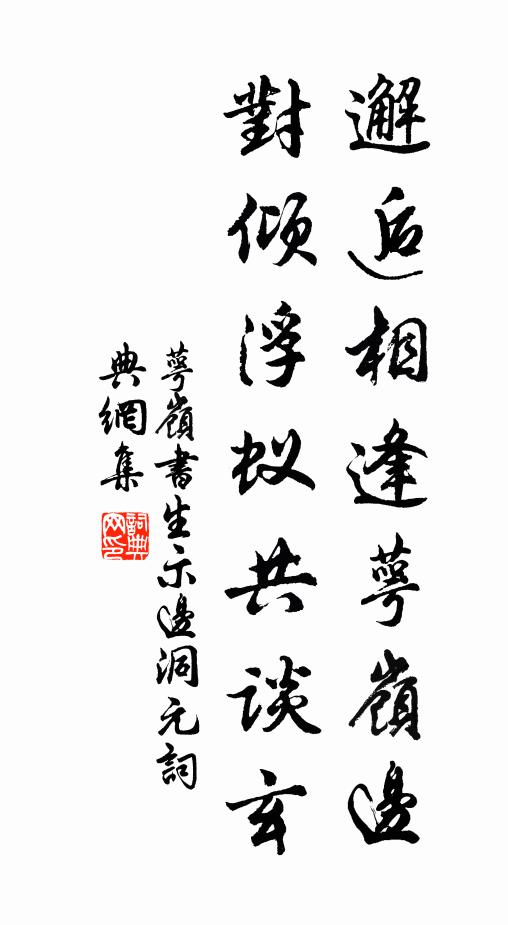 邂逅相逢萼嶺邊
對傾浮蚁共談玄
萼嶺書生示邊洞元詞
典網集
詞典網印